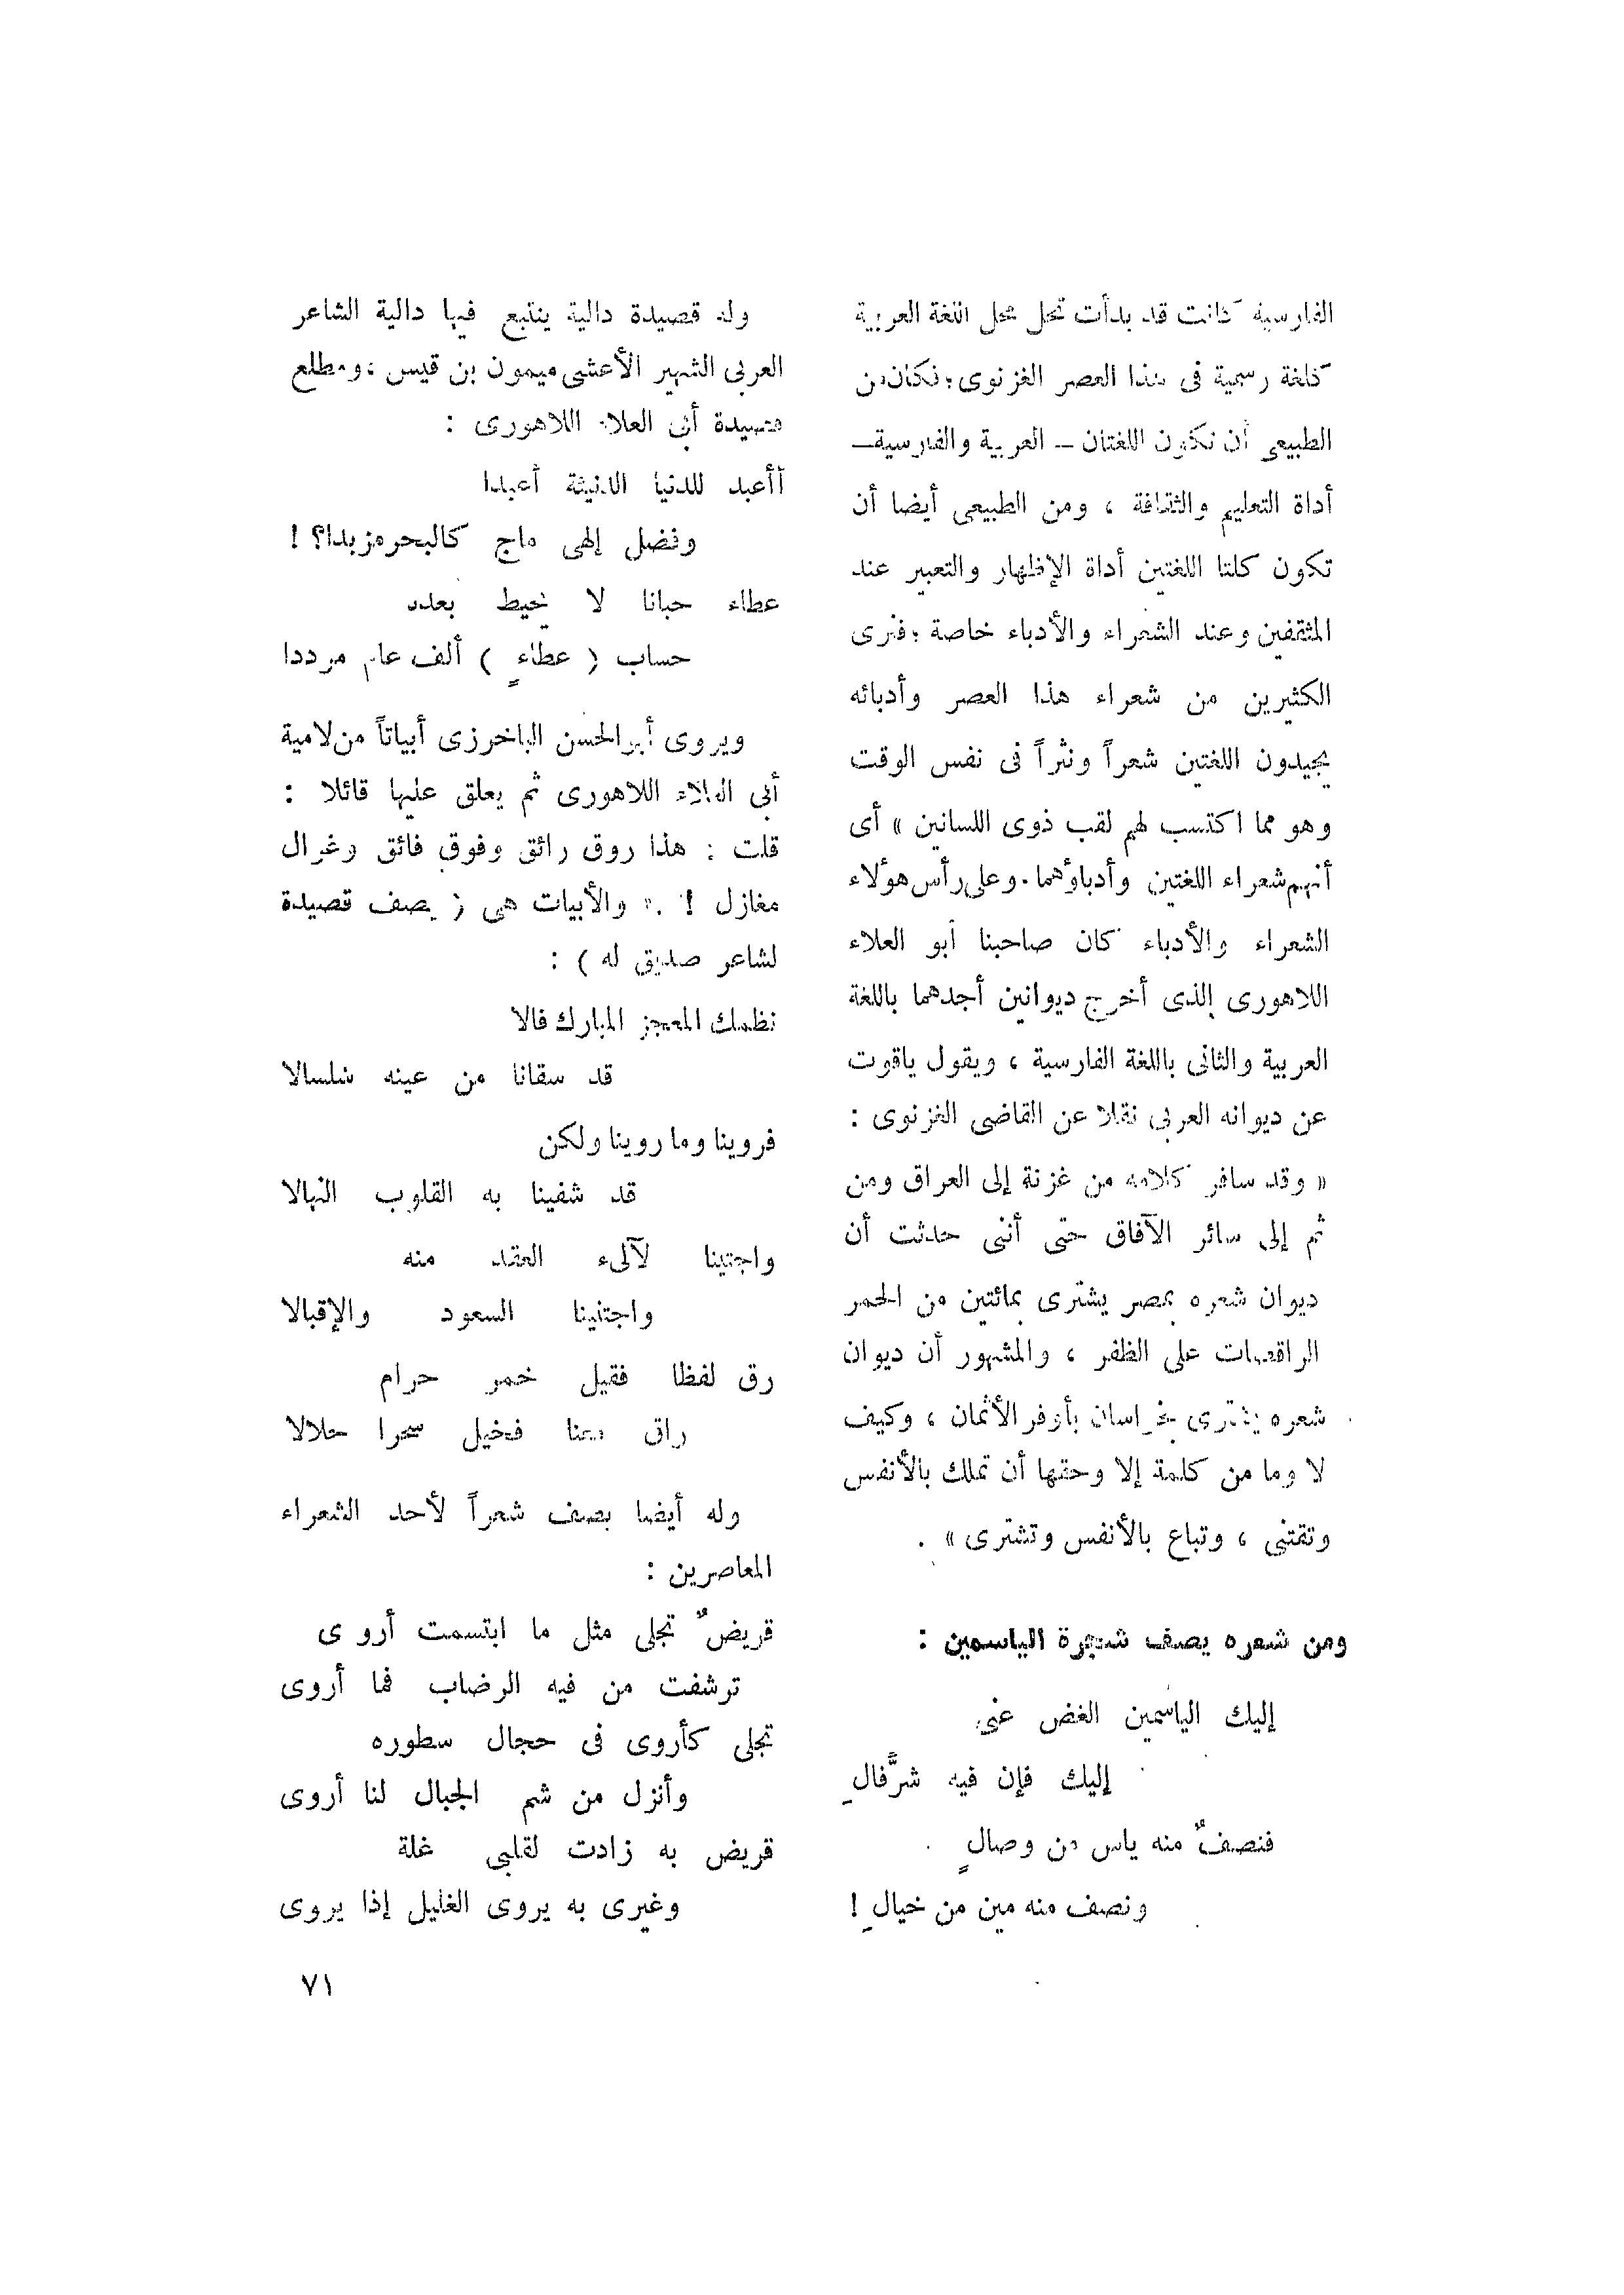 الفارسية كانت قد بدأت تحل محل اللغة العربية
كلغة رسمية فى هذا العصر الغزنوى ؛ فكان من
الطبيعى أن تكون اللغتان — العربية والفارسية —
أداة التعليم والثقافة ، ومن الطبيعى أيضا أن
تكون كلتا اللغتين أداة الإظهار والتعبير عند
المثقفين وعند الشعراء والأدباء خاصة ؛ فنرى
الكثيرين من شعراء هذا العصر وأدبائه
يجيدون اللغتين شعراً ونثراً فى نفس الوقت
وهو مما اكتسب لهم لقب ذوى اللسانين » أى
أنهم شعراء اللغتين وأدباؤهما . وعلى رأس هؤلاء
الشعراء والأدباء كان صاحبنا أبو العلاء
اللاهورى الذى أخرج ديوانين أحدهما باللغة
العربية والثانى باللغة الفارسية ، ويقول ياقوت
عن ديوانه العربى نقلا عن القاضى الغزنوى :
« وقد سافر كلامه من غزنة إلى العراق ومن
ثم إلى سائر الآفاق حتى أننى حدثت أن
ديوان شعره بمصر يشترى بمائتين من الحمر
الراقصات على الظفر ، والمشهور أن ديوان
شعره يشترى بخراسان بأوفر الأثمان ، وكيف
لا وما من كلمة إلا وحقها أن تملك بالأنفس
وتقتنى ، وتباع بالأنفس وتشترى » .
ومن شعره يصف شجرة الياسمين :
إليك الياسمين الغض عنى
إليك فإن فيه شرَّ فالِ
فنصفٌ منه ياس من وصالٍ
ونصف منه مين من خيالِ !
وله قصيدة دالية يتتبع فيها دالية الشاعر
العربى الشهير الأعشى ميمون بن قيس ، ومطلع
قصيدة أبى العلاء اللاهورى :
أأعبد للدنيا الدنيئة أعبدا
وفضل إلهى ماج كالبحر مزبدا؟ !
عطاء حبانا لا نحيط بعده
حساب ( عطاءٍ ) ألف عام مرددا
ويروى أبو الحسن الباخرزى أبياتاً من لامية
أبى العلاء اللاهورى ثم يعلق عليها قائلا :
قلت : هذا روق رائق وفوق فائق وغزال
مغازل ! .» والأبيات هى ( يصف قصيدة
لشاعر صديق له ) :
نظمك المعجز المبارك فالا
قد سقانا من عينه سلسالا
فروينا وما روينا ولكن
قد شفينا به القلوب النهالا
واجتينا لآلىء العقد منه
واجتنينا السعود والإقبالا
رق لفظا فقيل خمر حرام
راق معنا فخيل سحرا حلالا
وله أيضا يصف شعراً لأحد الشعراء
المعاصرين :
قريضٌ تجلى مثل ما ابتسمت أروى
ترشفت من فيه الرضاب فما أروى
تجلى كأروى فى حجال سطوره
وأنزل من شم الجبال لنا أروى
قريض به زادت لقلبى غلة
وغيرى به يروى الغليل إذا يروى
٧١